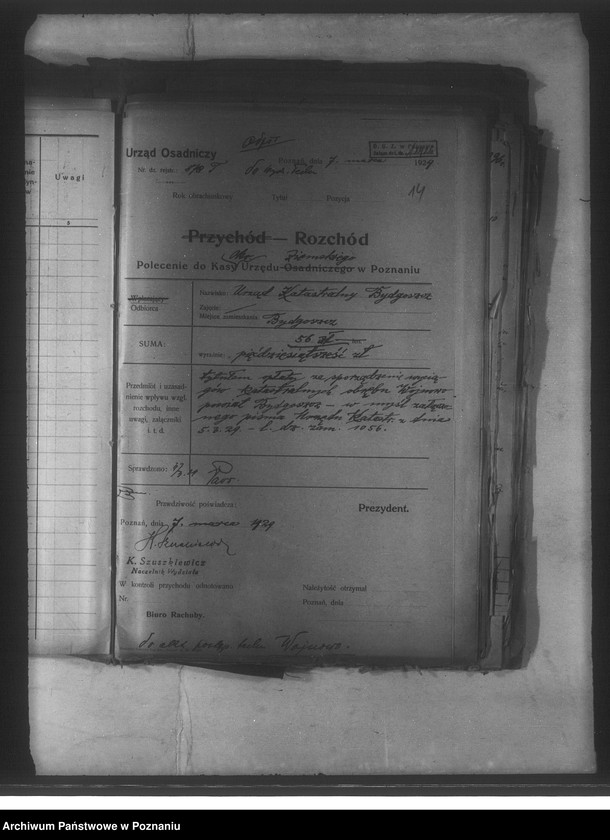 Uwagi
odpis
Urząd Osadniczy
Poznań, dnia 7. marca 1929
Nr. dz. rejestr.
Rok Obrachunkowy Tytuł Pozycja
14
Przychód — Rozchód
Okr. Ziemskiego
Polecenie do Kasy Urzędu Osadniczego w Poznaniu
Wpłacający
Odbiorca
Nazwisko: Urząd Katastralny Bydgoszcz
Zajęcie:
Miejsce zamieszkania Bydgoszcz
SUMA:
56 zł
wyraźnie: pięćdziesiątsześć zł
Przedmiot i uzasad-
nienie wpływu wzgl.
rozchodu, inne
uwagi, załączniki
i. t. d.
tytułem opłaty za sporządzenie wycią-
gów katastralnych obrębu Wojnowo
powiat Bydgoszcz – w myśl załączo-
nego pisma Urzędu Katastr. z dnia
5.2.29. – l. dz. zam. 1056.
Sprawdzono:
Prawdziwość poświadcza:
Prezydent.
Poznań, dnia 7. marca 1929
K. Szuszkiewicz
Naczelnik Wydziału
W kontroli przychodu odnotowano
Należytość otrzymał
Nr.
Poznań, dnia
Biuro Rachuby.
do akt. Wojnowo.
Archiwum Państwowe w Poznaniu